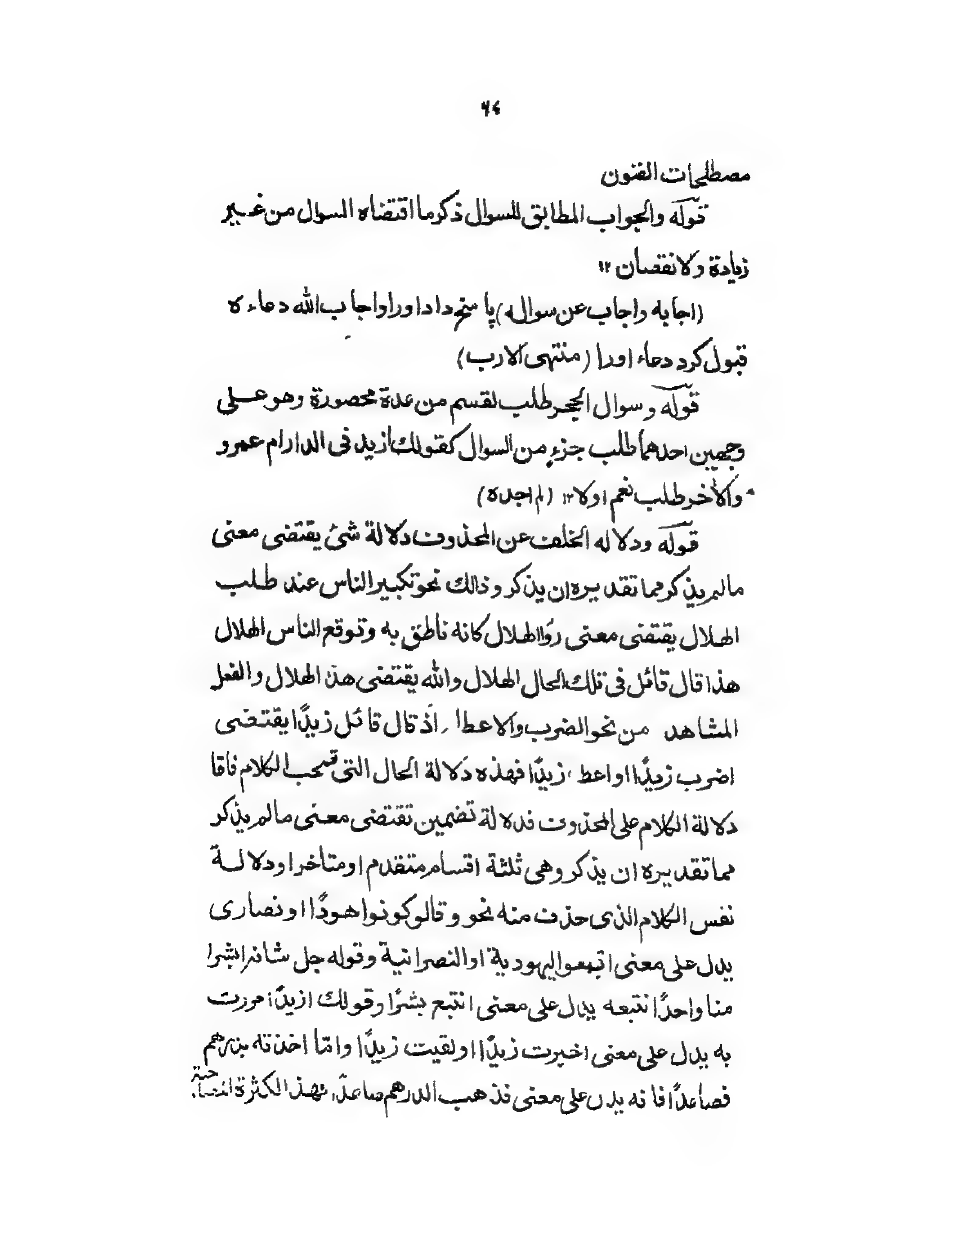 ۶۴
مصطلحات الفنون
قوله والجواب المطابق للسوال ذکر ما اقتضاه السوال من غیر
زیادة ولا نقصان ۱۲
(اجابه واجاب عن سواله) پاسخ داد اورا واجاب الله دعاءه
قبول کرد دعاء اورا (منتهی الارب)
قوله وسوال الحجر طلب لقسم من عدة محصورة وهو علی
وجهین احدهما طلب جزء من السوال کقولك ازید فی الدار ام عمرو
والآخر طلب نعم اولا ۱۲ (لم اجده)
قوله ودلاله الخلف عن المحذوف دلالة شئ یقتضی معنی
مالم یذکر مما تقدیره ان یذکر وذالك نحو تکبیر الناس عند طلب
الهلال یقتضی معنی رؤا الهلال کانه ناطق به وتوقع الناس الهلال
هذا قال قائل فی تلك الحال الهلال والله یقتضی هذا الهلال والفعل
المشاهد من نحو الضرب والاعطاء اذ قال قائل زیدًا یقتضی
اضرب زیدًا او اعط زیدًا فهذه دلالة الحال التی تصحب الکلام فاما
دلالة الکلام علی المحذوف فدلالة تضمین تقتضی معنی مالم یذکر
مما تقدیره ان یذکر وهی ثلثة اقسام متقدم او متاخر او دلالة
نفس الکلام الذی حذف منه نحو وقالو کونوا هودًا او نصاری
یدل علی معنی اتبعوا الیهودیة او النصرانیة وقوله جل شانه ابشرا
منا واحدًا نتبعه یدل علی معنی انتبع بشرًا وقولك ازیدًا مررت
به یدل علی معنی اخبرت زیدًا او لقیت زیدًا واما اخذته بدرهم
فصاعدًا فانه یدل علی معنی فذهب الدرهم صاعدًا فهذا لکثرة